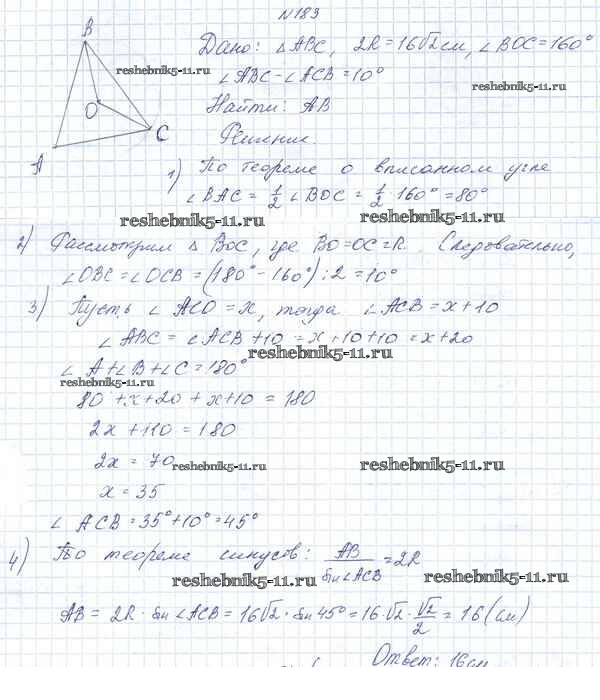 №183
B
Дано: △ABC, 2R=16√2 см, ∠BOC=160°
reshebnik5-11.ru
∠ABC-∠ACB=10°
reshebnik5-11.ru
O
Найти: AB
C
Решение.
A
1) По теореме о вписанном угле
∠BAC = 1/2 ∠BOC = 1/2 · 160° = 80°
reshebnik5-11.ru
reshebnik5-11.ru
2) Рассмотрим △ BOC, где BO=OC=R. Следовательно,
∠OBC=∠OCB=(180°-160°):2=10°
3) Пусть ∠ACO=x, тогда ∠ACB=x+10
∠ABC=∠ACB+10=x+10+10=x+20
reshebnik5-11.ru
∠A+∠B+∠C=180°
reshebnik5-11.ru
80+x+20+x+10=180
2x+110=180
2x=70
reshebnik5-11.ru
reshebnik5-11.ru
x=35
∠ACB=35°+10°=45°
4) По теореме синусов: AB/sin∠ACB=2R
reshebnik5-11.ru
reshebnik5-11.ru
AB=2R·sin∠ACB=16√2·sin45°=16·√2·√2/2=16(см)
Ответ: 16см